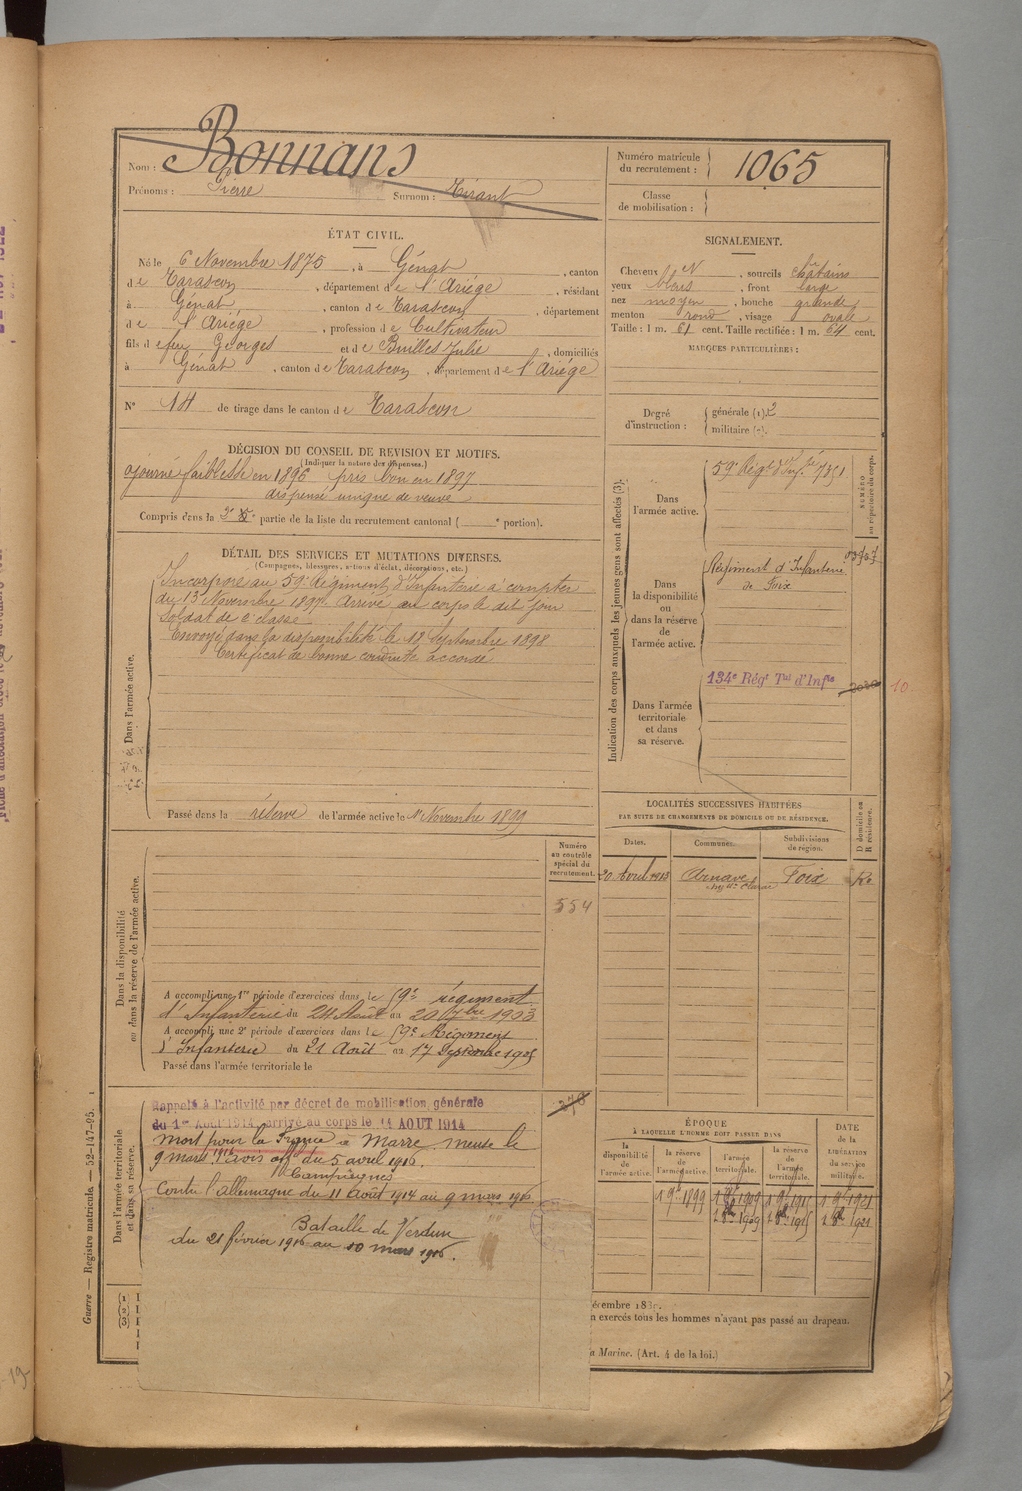 Nom : Bonnans
Prénoms : Pierre Surnom : Tirant
Numéro matricule du recrutement : 1065
Classe de mobilisation :
ÉTAT CIVIL.
Né le 6 Novembre 1875, à Génat, canton
de Tarascon, département de l'Ariége, résidant
à Génat, canton de Tarascon, département
de l'Ariége, profession de Cultivateur
fils de feu Georges et de Builles Julie, domiciliés
à Génat, canton de Tarascon, département de l'Ariége
N° 14 de tirage dans le canton de Tarascon
SIGNALEMENT.
Cheveux N, sourcils châtains
yeux bleus, front large
nez moyen, bouche grande
menton rond, visage ovale
Taille : 1 m. 61 cent. Taille rectifiée : 1 m. 64 cent.
MARQUES PARTICULIÈRES :
Degré d'instruction : générale (1). 2
militaire (2).
DÉCISION DU CONSEIL DE REVISION ET MOTIFS.
(Indiquer la nature des dispenses.)
ajourné faiblesse en 1896 pris bon en 1897
dispensé unique de veuve
Compris dans la 2e partie de la liste du recrutement cantonal ( e portion).
DÉTAIL DES SERVICES ET MUTATIONS DIVERSES.
(Campagnes, blessures, actions d'éclat, décorations, etc.)
Dans l'armée active.
Incorporé au 59e Régiment d'Infanterie à compter
du 13 Novembre 1897. Arrivé au corps le dit jour
Soldat de 2e classe
Envoyé dans la disponibilité le 18 Septembre 1898
Certificat de bonne conduite accordé
Passé dans la réserve de l'armée active le 1 Novembre 1899
Indication des corps auxquels les jeunes gens sont affectés (3).
NUMÉRO au répertoire du corps.
Dans l'armée active.
59e Régt d'Infie 7351
Dans la disponibilité ou dans la réserve de l'armée active.
Régiment d'Infanterie
de Foix
Dans l'armée territoriale et dans sa réserve.
134e Régt Tal d'Infie
10
LOCALITÉS SUCCESSIVES HABITÉES
PAR SUITE DE CHANGEMENTS DE DOMICILE OU DE RÉSIDENCE.
Dates. Communes. Subdivisions de région. D domicile ou R résidence.
20 Avril 1913 Arnave Foix Re
Dans la disponibilité ou dans la réserve de l'armée active.
Numéro au contrôle spécial du recrutement.
554
A accompli une 1re période d'exercices dans le 59e régiment
d'Infanterie du 24 Août au 20 7bre 1903
A accompli une 2e période d'exercices dans le 59e Régiment
d'Infanterie du 21 Août au 17 Septembre 1905
Passé dans l'armée territoriale le
Dans l'armée territoriale et dans sa réserve.
Rappelé à l'activité par décret de mobilisation générale
du 1er AOUT 1914, arrivé au corps le 11 AOUT 1914
Mort pour la France à Marre meuse le
9 mars 1916 avis offel du 5 avril 1916.
Campagnes
Contre l'allemagne du 11 Août 1914 au 9 mars 1916
Bataille de Verdun
du 21 février 1916 au 10 mars 1916.
ÉPOQUE
À LAQUELLE L'HOMME DOIT PASSER DANS
la disponibilité de l'armée active. la réserve de l'armée active. l'armée territoriale. la réserve de l'armée territoriale. DATE de la LIBÉRATION du service militaire.
1 9bre 1899 1 9bre 1909 1 9bre 1915 1 9bre 1921
1 8bre 1909 1 8bre 1915 1 8bre 1921
écembre 18
n exercés tous les hommes n'ayant pas passé au drapeau.
a Marine. (Art. 4 de la loi.)
Guerre — Registre matricule. — 52-147-95.